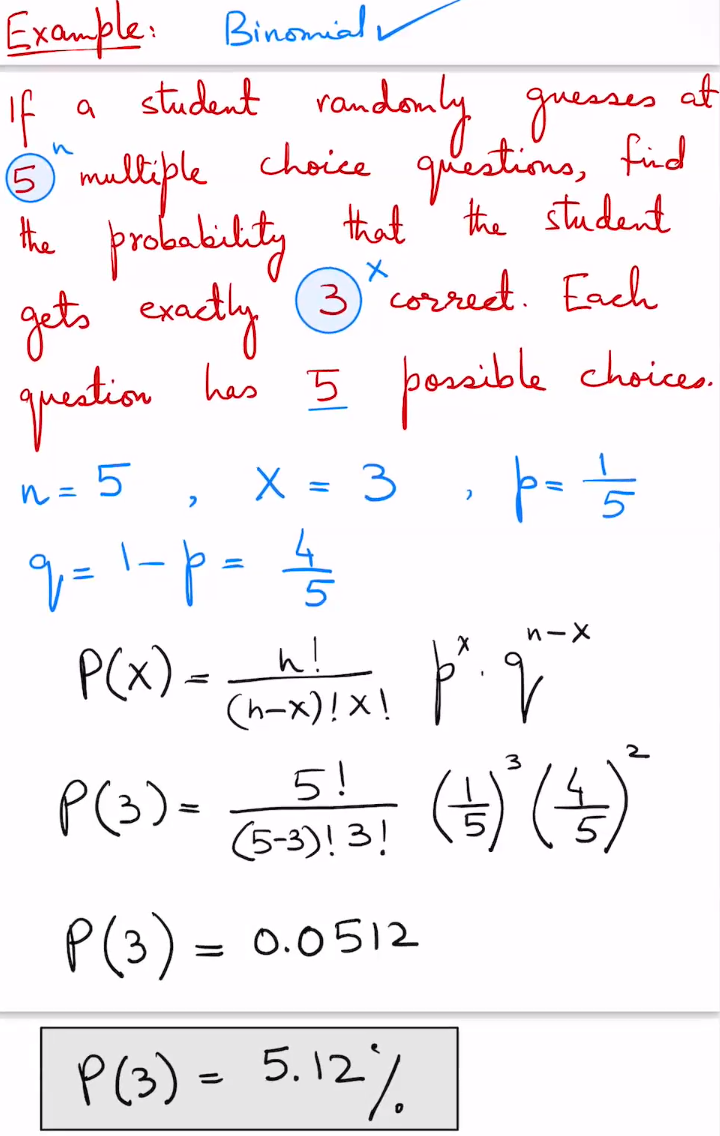 Example: Binomial ✓
If a student randomly guesses at
5 n multiple choice questions, find
the probability that the student
gets exactly 3 x correct. Each
question has 5 possible choices.
n = 5 , x = 3 , p = 1/5
q = 1 - p = 4/5
P(x) = n!/(n-x)! x! p^x · q^(n-x)
P(3) = 5!/(5-3)! 3! (1/5)^3 (4/5)^2
P(3) = 0.0512
P(3) = 5.12%